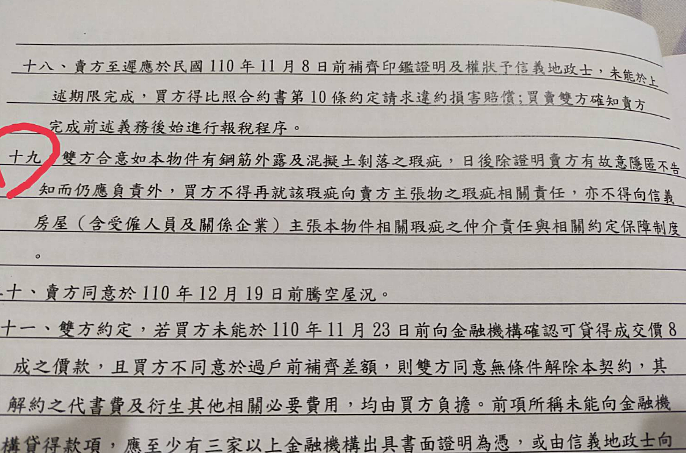 十八、賣方至遲應於民國 110 年 11 月 8 日前補齊印鑑證明及權狀予信義地政士，未能於上
述期限完成，買方得比照合約書第 10 條約定請求違約損害賠償；買賣雙方確知賣方
完成前述義務後始進行報稅程序。
十九、雙方合意如本物件有鋼筋外露及混擬土剝落之瑕疵，日後除證明賣方有故意隱匿不告
知而仍應負責外，買方不得再就該瑕疵向賣方主張物之瑕疵相關責任，亦不得向信義
房屋（含受僱人員及關係企業）主張本物件相關瑕疵之仲介責任與相關約定保障制度
。
十、賣方同意於 110 年 12 月 19 日前騰空屋況。
十一、雙方約定，若買方未能於 110 年 11 月 23 日前向金融機構確認可貸得成交價 8
成之價款，且買方不同意於過戶前補齊差額，則雙方同意無條件解除本契約，其
解約之代書費及衍生其他相關必要費用，均由買方負擔。前項所稱未能向金融機
構貸得款項，應至少有三家以上金融機構出具書面證明為憑，或由信義地政士向